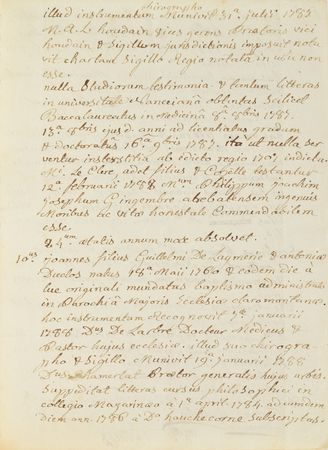 chirographo
illud instrumentum Munivit 31ª. julii 1785
M. A. Le houdain vices gerens Prætoris vici
houdain & Sigillum jurisdictionis imposuit nota
vit chartam Sigillo Regio notata in usu non
esse.
nulla Studiorum testimonia & tentum litteras
in universitate obtentus Scilicet
Baccalaureatus in Medicina 8ª 8bris 1787.
13ª ejusd. anni ad licentiatus gradum
& doctoratus 16ª 9bris 1787. ita ut nulla ser
ventur interstitia ab edicto regio 1707 indicta
M. Le Clerc, adot filius & testantur
12ª februarii 1788 Mum Philippum joachim
josephum Gingembre abbatensem ingenuis
Moribus ac vitæ honestate Commendabilem
esse.
24um ætatis annum mox absolvet.
10us joannes filius Guillelmi De Laymerie & antoniæ
Duclos natus 18ª Maii 1760 & eodem die a
lue originali mundatus baptismo administrato
in Parochia Majoris Ecclesiæ claromontanæ.
hoc instrumentum Recognovit 7ª januarii
1788 Dus De Larbre Doctor Medicus &
Pastor hujus ecclesiæ. illud suo chirogra-
pho & Sigillo Munivit 19ª januarii 1788
Dus Prætor generalis hujus urbis.
Suppeditat litteras cursus philosophici in
collegio Mazarinæo a 1ª april. 1784. ad eumdem
diem ann. 1786 a Do hauchecorne Subscriptas.